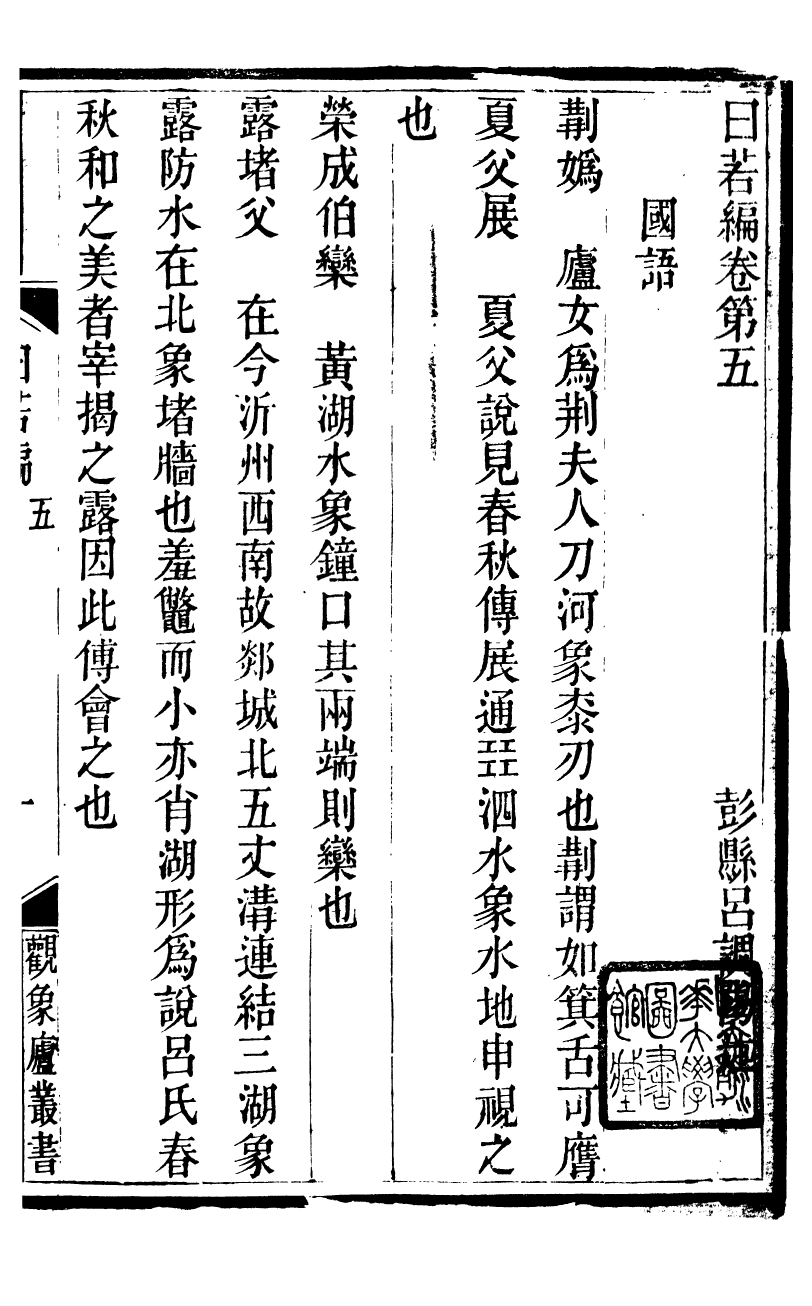 曰若編卷第五
彭縣呂調陽
國語
荆嬀　廬女爲荆夫人刀河象桼刃也荆謂如箕舌可膺
夏父展　夏父說見春秋傳展通㠭泗水象水地申視之
也
榮成伯欒　黃湖水象鐘口其兩端則欒也
露堵父　在今沂州西南故郯城北五丈溝連結三湖象
露防水在北象堵牆也羞鼈而小亦肖湖形爲說呂氏春
秋和之美者宰揭之露因此傅會之也
曰若編
五
一
觀象廬叢書
華大學
圖書
館藏